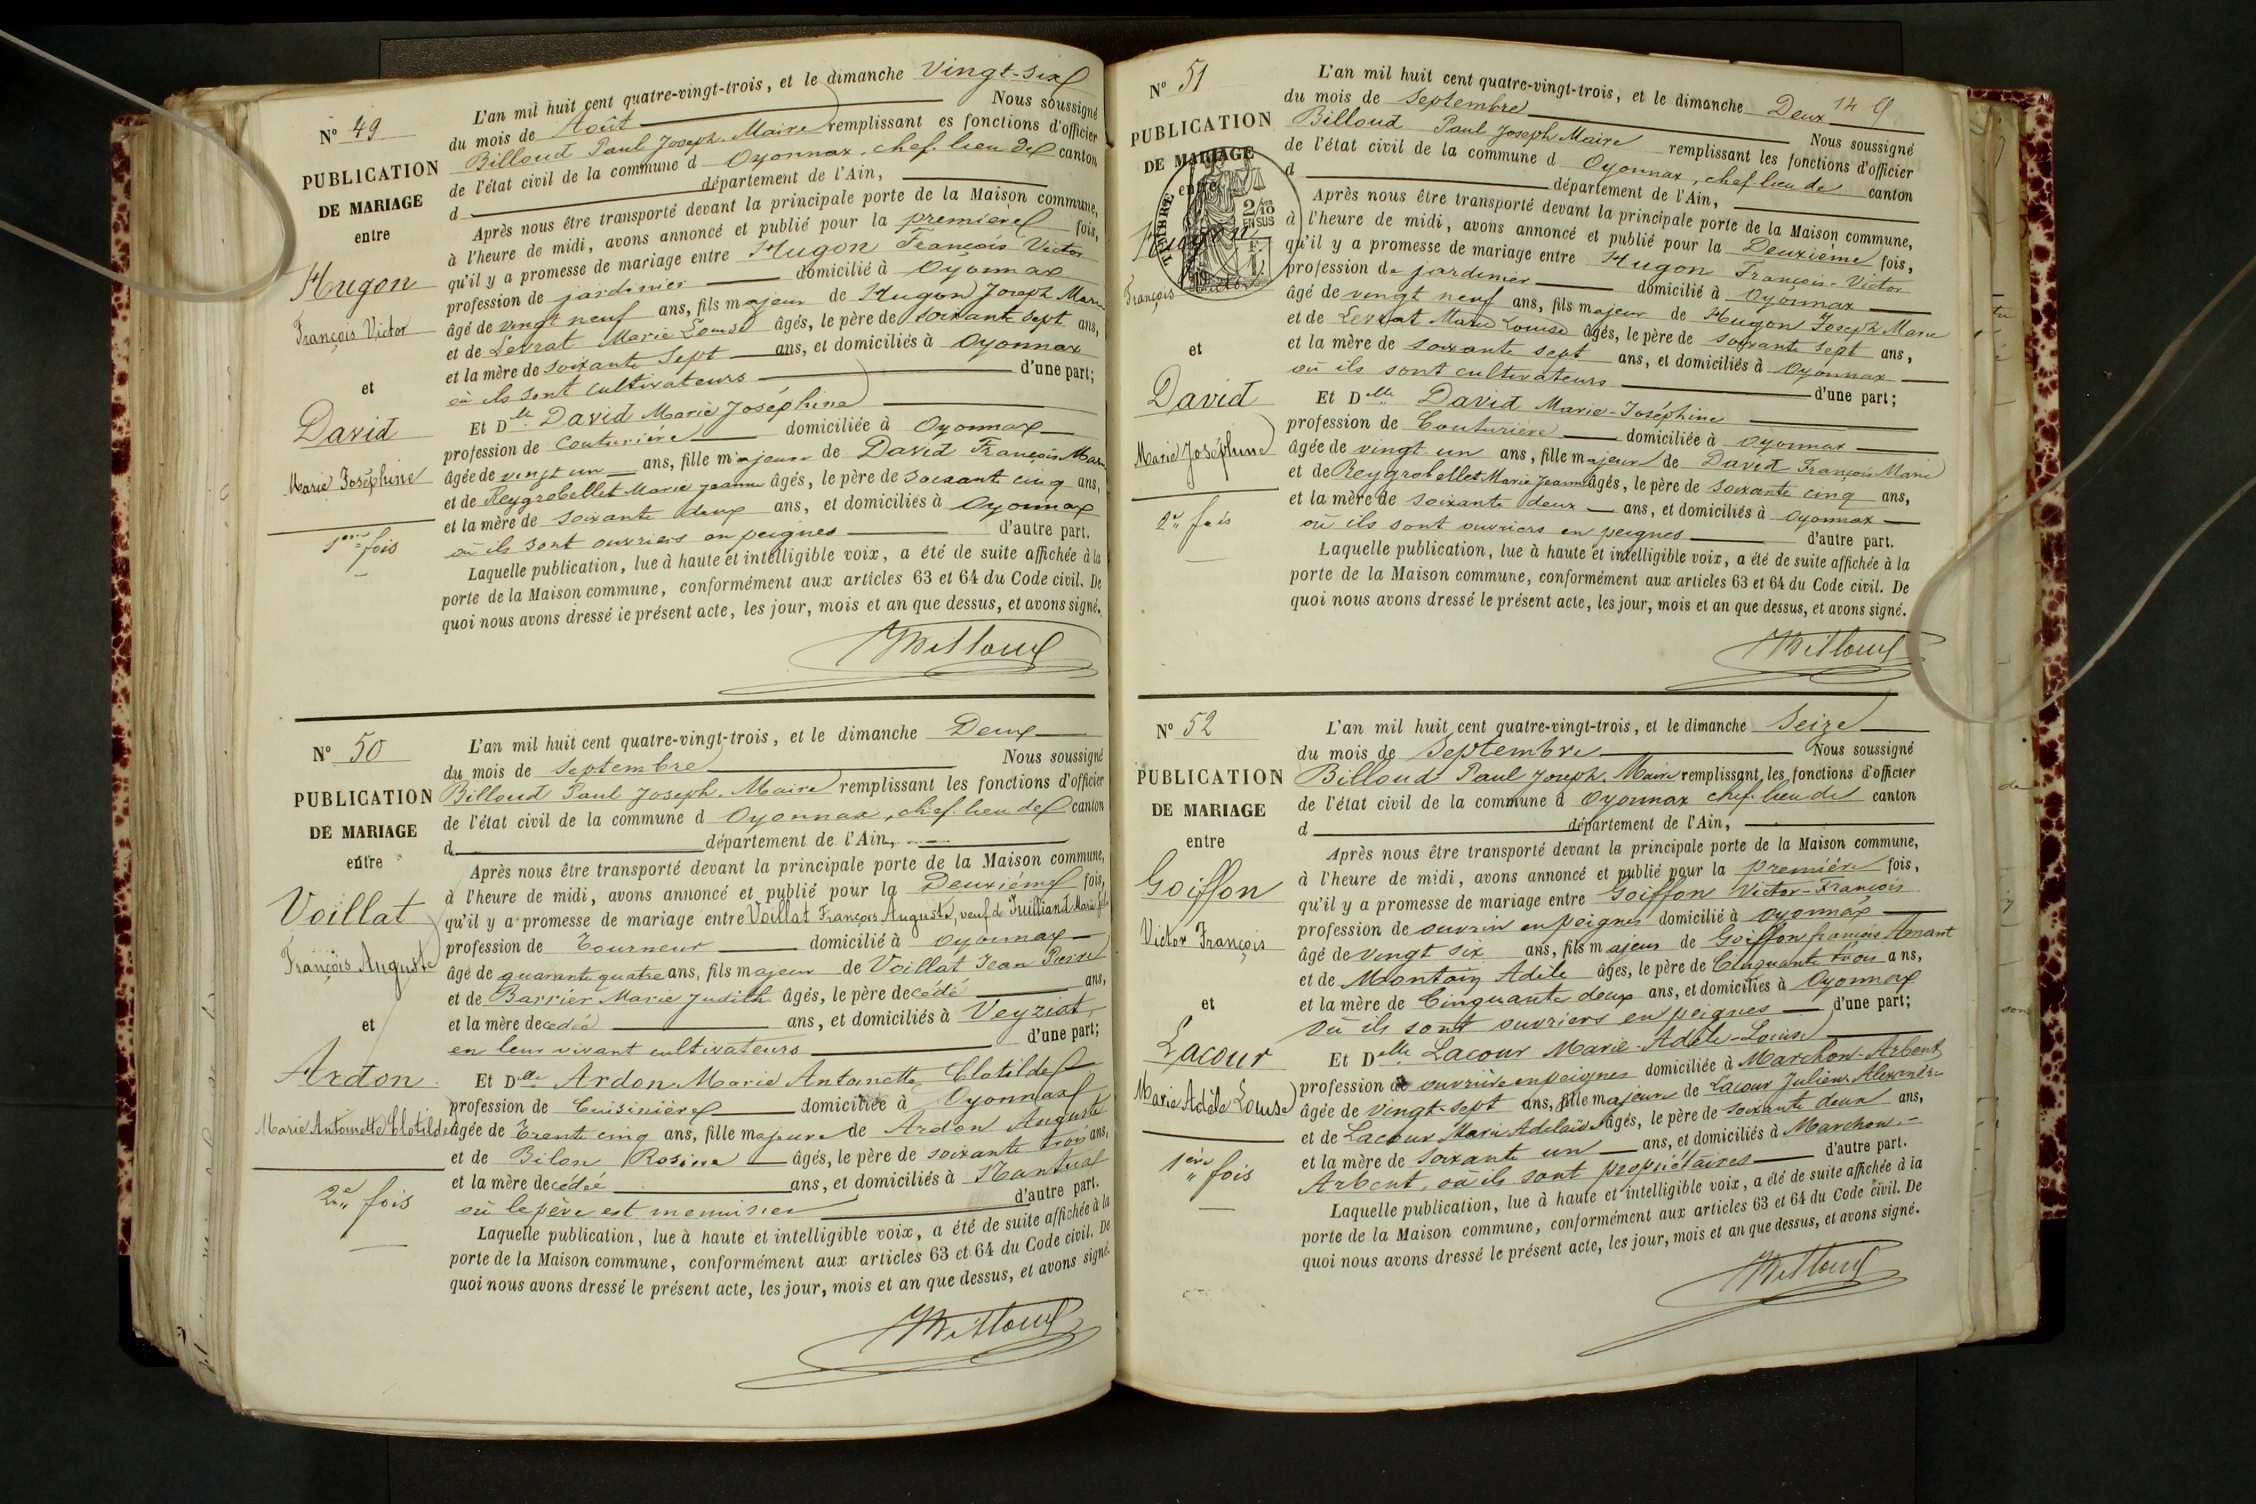 N° 49
PUBLICATION
DE MARIAGE
entre
Hugon
François Victor
et
David
Marie Joséphine
1ère fois
L'an mil huit cent quatre-vingt-trois, et le dimanche Vingt-six
du mois de Août Nous soussigné
Billoud Paul Joseph Maire remplissant es fonctions d'officier
de l'état civil de la commune d Oyonnax, chef-lieu de canton
d département de l'Ain,
Après nous être transporté devant la principale porte de la Maison commune,
à l'heure de midi, avons annoncé et publié pour la première fois,
qu'il y a promesse de mariage entre Hugon François Victor
profession de jardinier domicilié à Oyonnax
âgé de vingt neuf ans, fils majeur de Hugon Joseph Marie
et de Levrat Marie Louise âgés, le père de soixante sept ans,
et la mère de soixante sept ans, et domiciliés à Oyonnax
où ils sont cultivateurs d'une part;
Et Dlle David Marie Joséphine
profession de couturière domiciliée à Oyonnax
âgée de vingt un ans, fille majeure de David François Marie
et de Reygrobellet Marie Jeanne âgés, le père de soixant cinq ans,
et la mère de soixante deux ans, et domiciliés à Oyonnax
où ils sont ouvriers en peignes d'autre part.
Laquelle publication, lue à haute et intelligible voix, a été de suite affichée à la
porte de la Maison commune, conformément aux articles 63 et 64 du Code civil. De
quoi nous avons dressé le présent acte, les jour, mois et an que dessus, et avons signé.
Billoud
N° 50
PUBLICATION
DE MARIAGE
entre
Voillat
François Auguste
et
Ardon
Marie Antoinette Clotilde
2e fois
L'an mil huit cent quatre-vingt-trois, et le dimanche Deux
du mois de Septembre Nous soussigné
Billoud Paul Joseph Maire remplissant les fonctions d'officier
de l'état civil de la commune d Oyonnax, chef-lieu de canton
d département de l'Ain,
Après nous être transporté devant la principale porte de la Maison commune,
à l'heure de midi, avons annoncé et publié pour la Deuxième fois,
qu'il y a promesse de mariage entre Voillat François Auguste, veuf de Juilliand Marie
profession de Tourneur domicilié à Oyonnax
âgé de quarante quatre ans, fils majeur de Voillat Jean Pierre
et de Barrier Marie Judith âgés, le père decédé ans,
et la mère decedée ans, et domiciliés à Veyziat,
en leur vivant cultivateurs d'une part;
Et Dlle Ardon Marie Antoinette Clotilde
profession de Cuisinière domiciliée à Oyonnax
âgée de Trente cinq ans, fille majeure de Ardon Auguste
et de Bilon Rosine âgés, le père de soixante trois ans,
et la mère decédée ans, et domiciliés à Nantua
où le père est menuisier d'autre part.
Laquelle publication, lue à haute et intelligible voix, a été de suite affichée à la
porte de la Maison commune, conformément aux articles 63 et 64 du Code civil. De
quoi nous avons dressé le présent acte, les jour, mois et an que dessus, et avons signé.
Billoud
N° 51
PUBLICATION
DE MARIAGE
entre
TIMBRE
2/10
EN SUS
Hugon
François Victor
et
David
Marie Joséphine
2e fois
14
L'an mil huit cent quatre-vingt-trois, et le dimanche Deux
du mois de Septembre Nous soussigné
Billoud Paul Joseph Maire remplissant les fonctions d'officier
de l'état civil de la commune d Oyonnax, chef-lieu de canton
d département de l'Ain,
Après nous être transporté devant la principale porte de la Maison commune,
à l'heure de midi, avons annoncé et publié pour la Deuxième fois,
qu'il y a promesse de mariage entre Hugon François-Victor
profession de jardinier domicilié à Oyonnax
âgé de vingt neuf ans, fils majeur de Hugon Joseph Marie
et de Levrat Marie Louise âgés, le père de soixante sept ans,
et la mère de soixante sept ans, et domiciliés à Oyonnax
où ils sont cultivateurs d'une part;
Et Dlle David Marie-Joséphine
profession de Couturière domiciliée à Oyonnax
âgée de vingt un ans, fille majeure de David François Marie
et de Reygrobellet Marie Jeanne âgés, le père de soixante cinq ans,
et la mère de soixante deux ans, et domiciliés à Oyonnax
où ils sont ouvriers en peignes d'autre part.
Laquelle publication, lue à haute et intelligible voix, a été de suite affichée à la
porte de la Maison commune, conformément aux articles 63 et 64 du Code civil. De
quoi nous avons dressé le présent acte, les jour, mois et an que dessus, et avons signé.
Billoud
N° 52
PUBLICATION
DE MARIAGE
entre
Goiffon
Victor François
et
Lacour
Marie Adèle Louise
1ère fois
L'an mil huit cent quatre-vingt-trois, et le dimanche Seize
du mois de Septembre Nous soussigné
Billoud Paul Joseph Maire remplissant les fonctions d'officier
de l'état civil de la commune d Oyonnax chef-lieu de canton
d département de l'Ain,
Après nous être transporté devant la principale porte de la Maison commune,
à l'heure de midi, avons annoncé et publié pour la première fois,
qu'il y a promesse de mariage entre Goiffon Victor-François
profession de ouvrier en peignes domicilié à Oyonnax
âgé de vingt six ans, fils majeur de Goiffon françois Amant
et de Montain Adèle âgés, le père de Cinquante trois ans,
et la mère de Cinquante deux ans, et domiciliés à Oyonnax
où ils sont ouvriers en peignes d'une part;
Et Dlle Lacour Marie-Adèle-Louise
profession de ouvrière en peignes domiciliée à Marchon-Arbent
âgée de vingt-sept ans, fille majeure de Lacour Julien Alexandre
et de Lacour Marie Adelaïde âgés, le père de soixante deux ans,
et la mère de soixante un ans, et domiciliés à Marchon-
Arbent, où ils sont propriétaires d'autre part.
Laquelle publication, lue à haute et intelligible voix, a été de suite affichée à la
porte de la Maison commune, conformément aux articles 63 et 64 du Code civil. De
quoi nous avons dressé le présent acte, les jour, mois et an que dessus, et avons signé.
Billoud